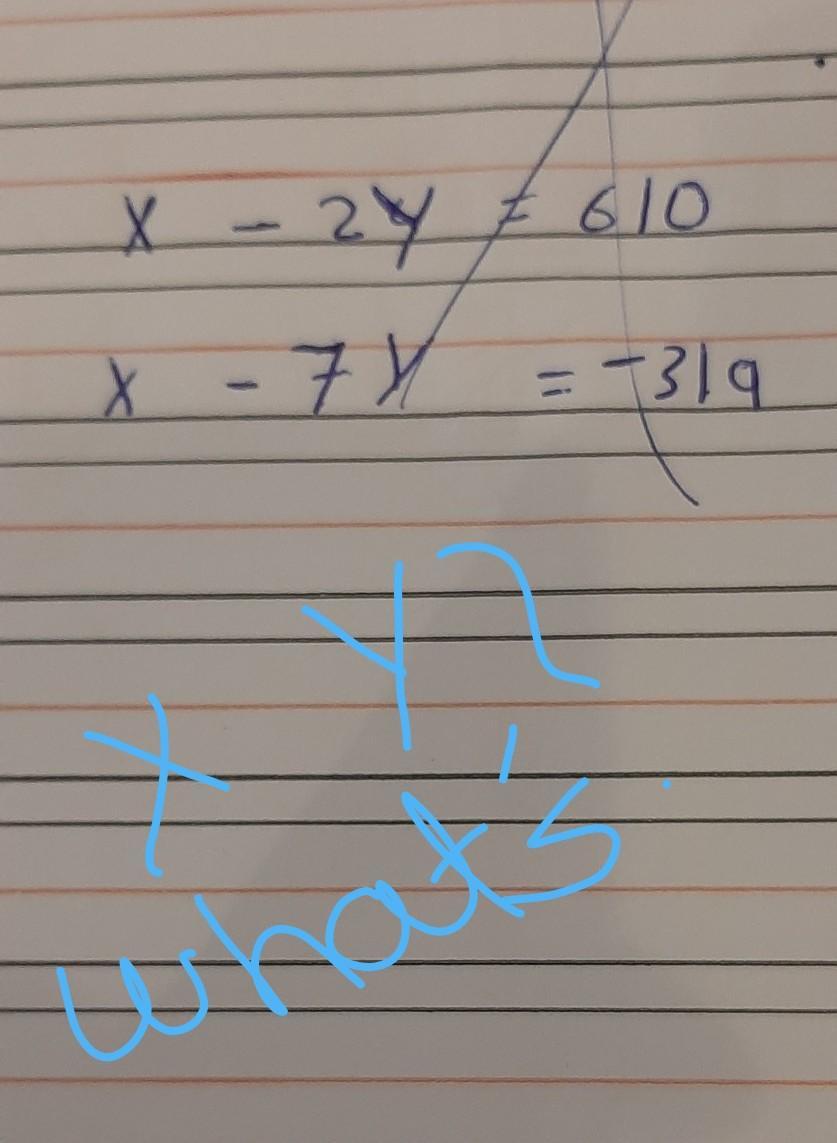 x - 2y = 610
x - 7y = -319
X Y?
what's